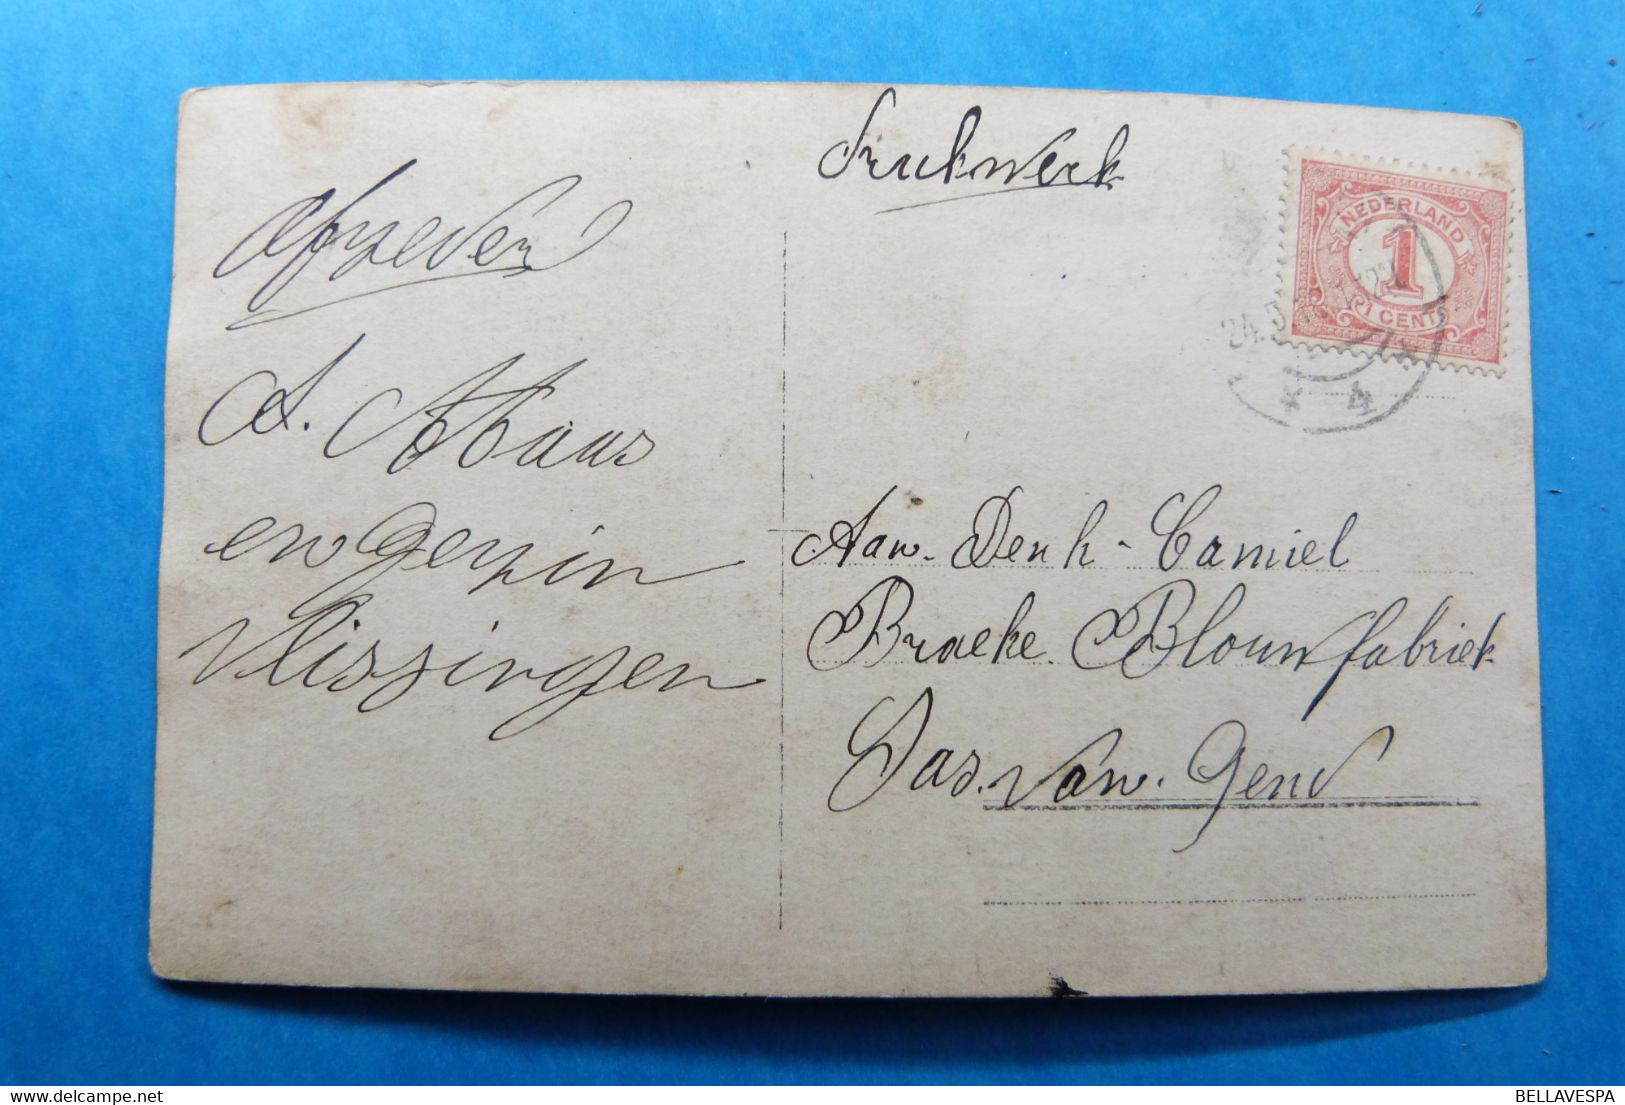 Drukwerk
NEDERLAND
1
1 CENT
24.3
4
Afzender
A. Maas
en Gezin
Vlissingen
Aan. Den h. Camiel
Braeke. Blouwfabriek
Sas. van. Gend
BELLAVESPA